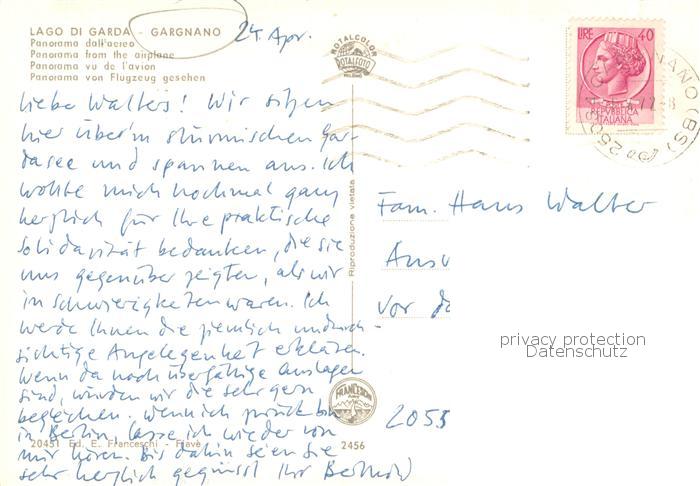 LAGO DI GARDA - GARGNANO
24. Apr.
Panorama dall'aereo
Panorama from the airplane
Panorama vu de l'avion
Panorama von Flugzeug gesehen
Liebe Walters! Wir sitzen
hier über'm stürmischen Gar-
dasee und spannen aus. Ich
wollte mich nochmal ganz
herzlich für Ihre praktische
Solidarität bedanken, die sie
uns gegenüber zeigten, als wir
in Schwierigkeiten waren. Ich
werde Ihnen die ziemlich undurch-
sichtige Angelegenheit erklären.
Wenn da noch überfällige Auslagen
sind, würden wir die sehr gern
begleichen. Wenn ich zurück bin
in Berlin, lasse ich wieder von
mir hören. Bis dahin seien sie
sehr herzlich gegrüsst Ihr
20451 Ed. E. Franceschi - Fiavè
2456
ROTALCOLOR
ROTALFOTO
MILANO
Riproduzione vietata
FRANCESCHI
LIRE 40
REPVBBLICA
ITALIANA
(BS)
Fam. Hans Walter
Ansv
vor da
2055
privacy protection
Datenschutz